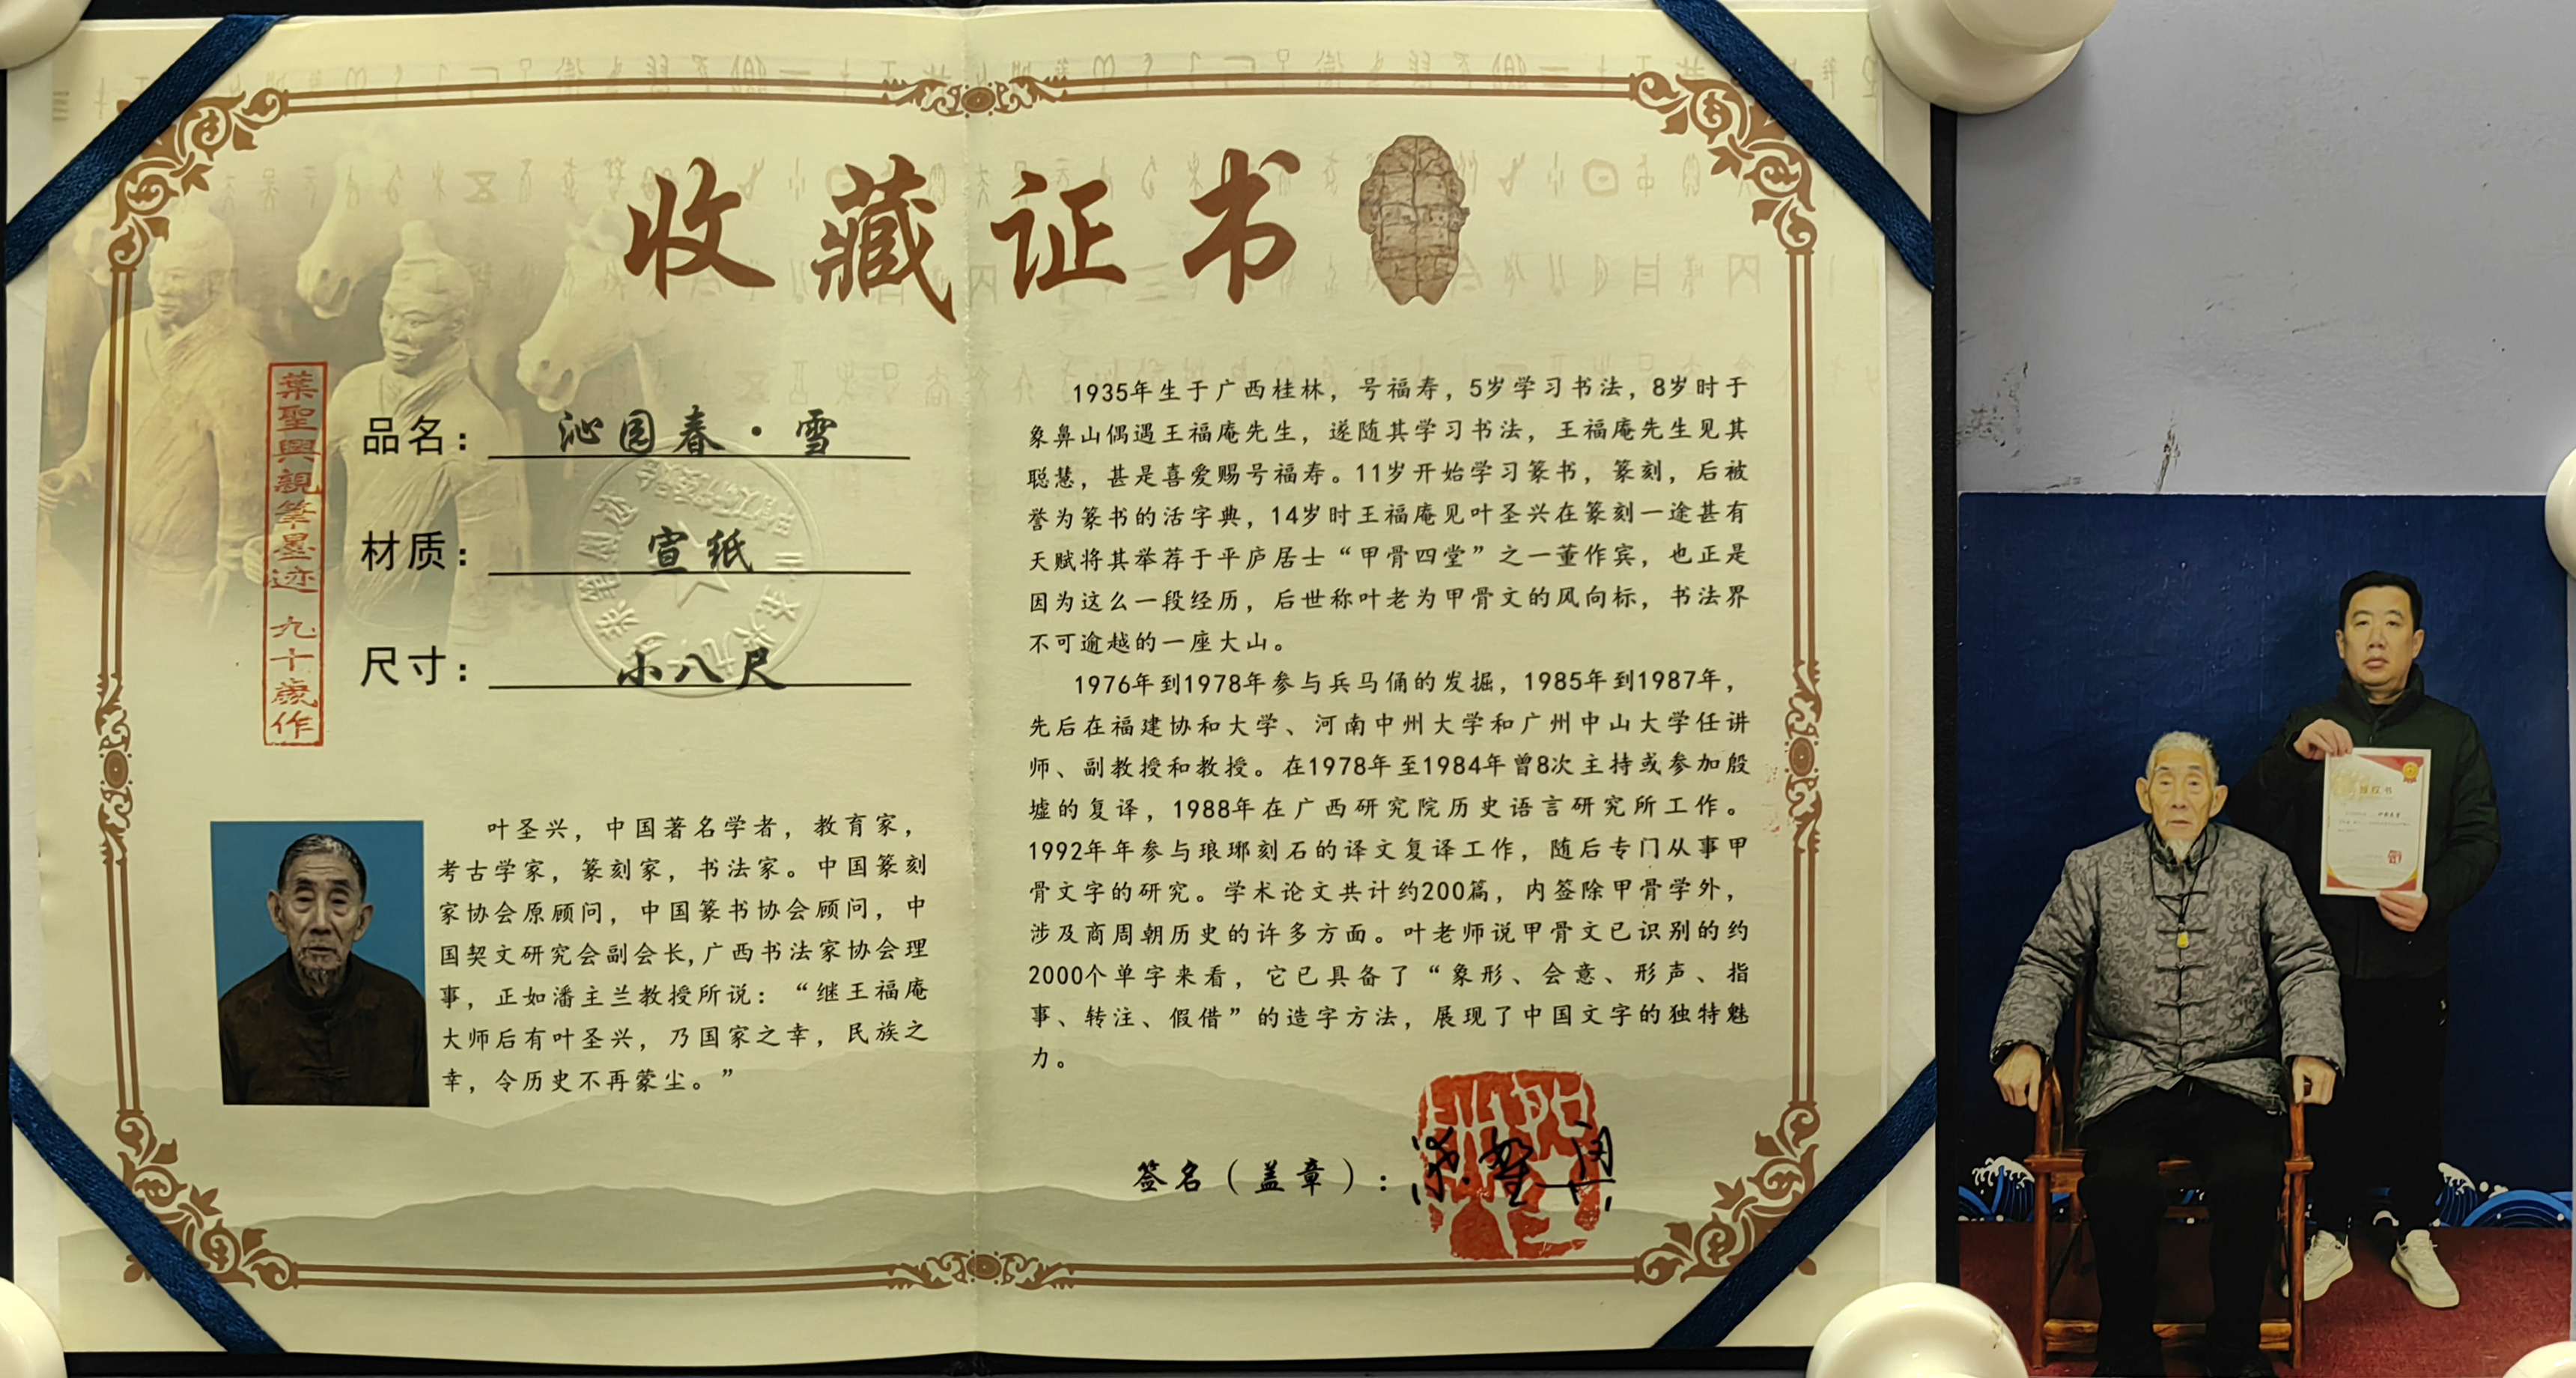 收藏证书
葉聖興親筆墨迹 九十歲作
品名：沁园春·雪
材质：宣纸
尺寸：小八尺
叶圣兴，中国著名学者，教育家，
考古学家，篆刻家，书法家。中国篆刻
家协会原顾问，中国篆书协会顾问，中
国契文研究会副会长,广西书法家协会理
事，正如潘主兰教授所说：“继王福庵
大师后有叶圣兴，乃国家之幸，民族之
幸，令历史不再蒙尘。”
1935年生于广西桂林，号福寿，5岁学习书法，8岁时于
象鼻山偶遇王福庵先生，遂随其学习书法，王福庵先生见其
聪慧，甚是喜爱赐号福寿。11岁开始学习篆书，篆刻，后被
誉为篆书的活字典，14岁时王福庵见叶圣兴在篆刻一途甚有
天赋将其举荐于平庐居士“甲骨四堂”之一董作宾，也正是
因为这么一段经历，后世称叶老为甲骨文的风向标，书法界
不可逾越的一座大山。
1976年到1978年参与兵马俑的发掘，1985年到1987年，
先后在福建协和大学、河南中州大学和广州中山大学任讲
师、副教授和教授。在1978年至1984年曾8次主持或参加殷
墟的复译，1988年在广西研究院历史语言研究所工作。
1992年年参与琅琊刻石的译文复译工作，随后专门从事甲
骨文字的研究。学术论文共计约200篇，内签除甲骨学外，
涉及商周朝历史的许多方面。叶老师说甲骨文已识别的约
2000个单字来看，它已具备了“象形、会意、形声、指
事、转注、假借”的造字方法，展现了中国文字的独特魅
力。
签名（盖章）：
授权书